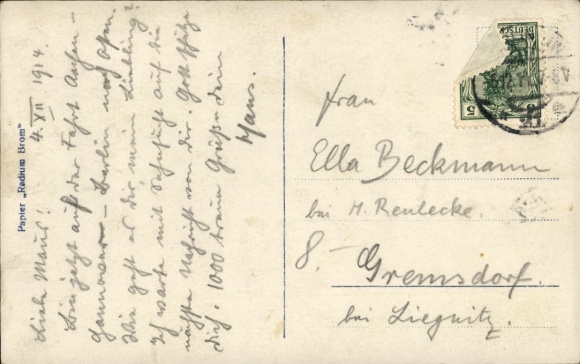 4. XII 1914.
Liebe Maus!
Bin jetzt auf der Fahrt Aachen -
Hannover - Berlin nach Posen.
Wie geht es dir mein Liebling?
Ich warte mit Sehnsucht auf die
nächste Nachricht von dir. Gott schütze
dich. 1000 treue Grüße dein
Hans.
Papier „Radium Brom“
DEUTSCHES
5
Frau
Ella Beckmann
bei H. Reulecke.
8. Gremsdorf.
bei Liegnitz.